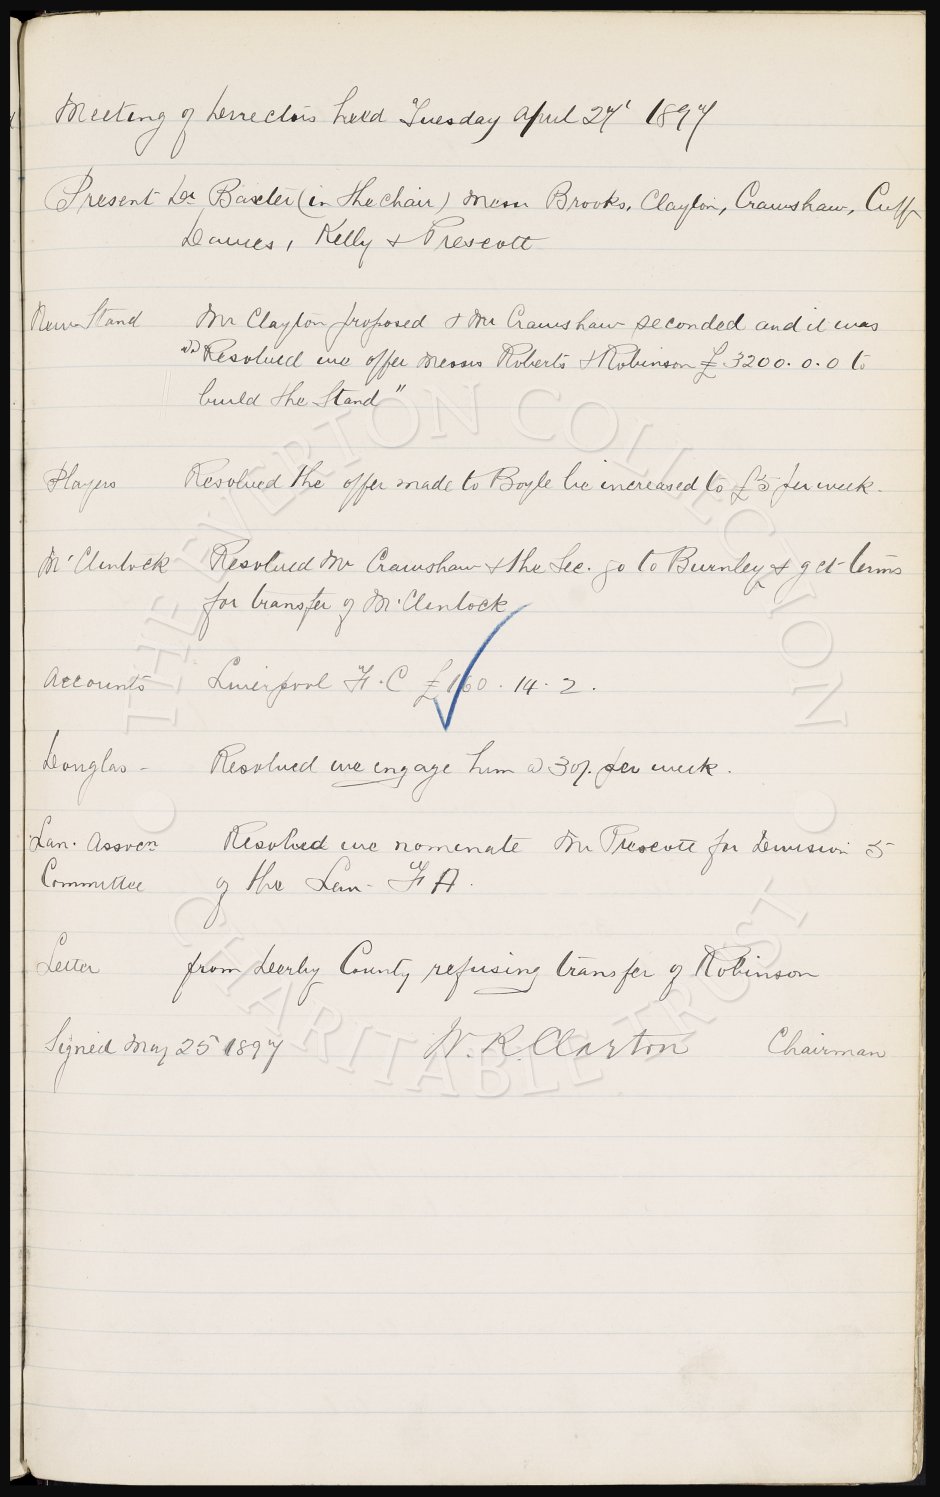 Meeting of Directors held Tuesday April 27' 1897
Present Dr Baxter (in the chair) Messrs Brooks, Clayton, Crawshaw, Cuff
Davies, Kelly & Prescott
New Stand Mr Clayton proposed & Mr Crawshaw seconded and it was
Resolved we offer Messrs Roberts & Robinson £3200.0.0 to
build the Stand"
Players Resolved the offer made to Boyle be increased to £3 per week.
McClintock Resolved Mr Crawshaw & the Sec. go to Burnley & get terms
for transfer of McClintock
Accounts Liverpool F.C £160.14.2.
Douglas - Resolved we engage him @ 30/. per week.
Lan. Assocn Resolved we nominate Mr Prescott for Division 5
Committee of the Lan. F A.
Letter from Derby County refusing transfer of Robinson
Signed May 25 1897 W. R. Clayton Chairman
THE EVERTON COLLECTION
CHARITABLE TRUST